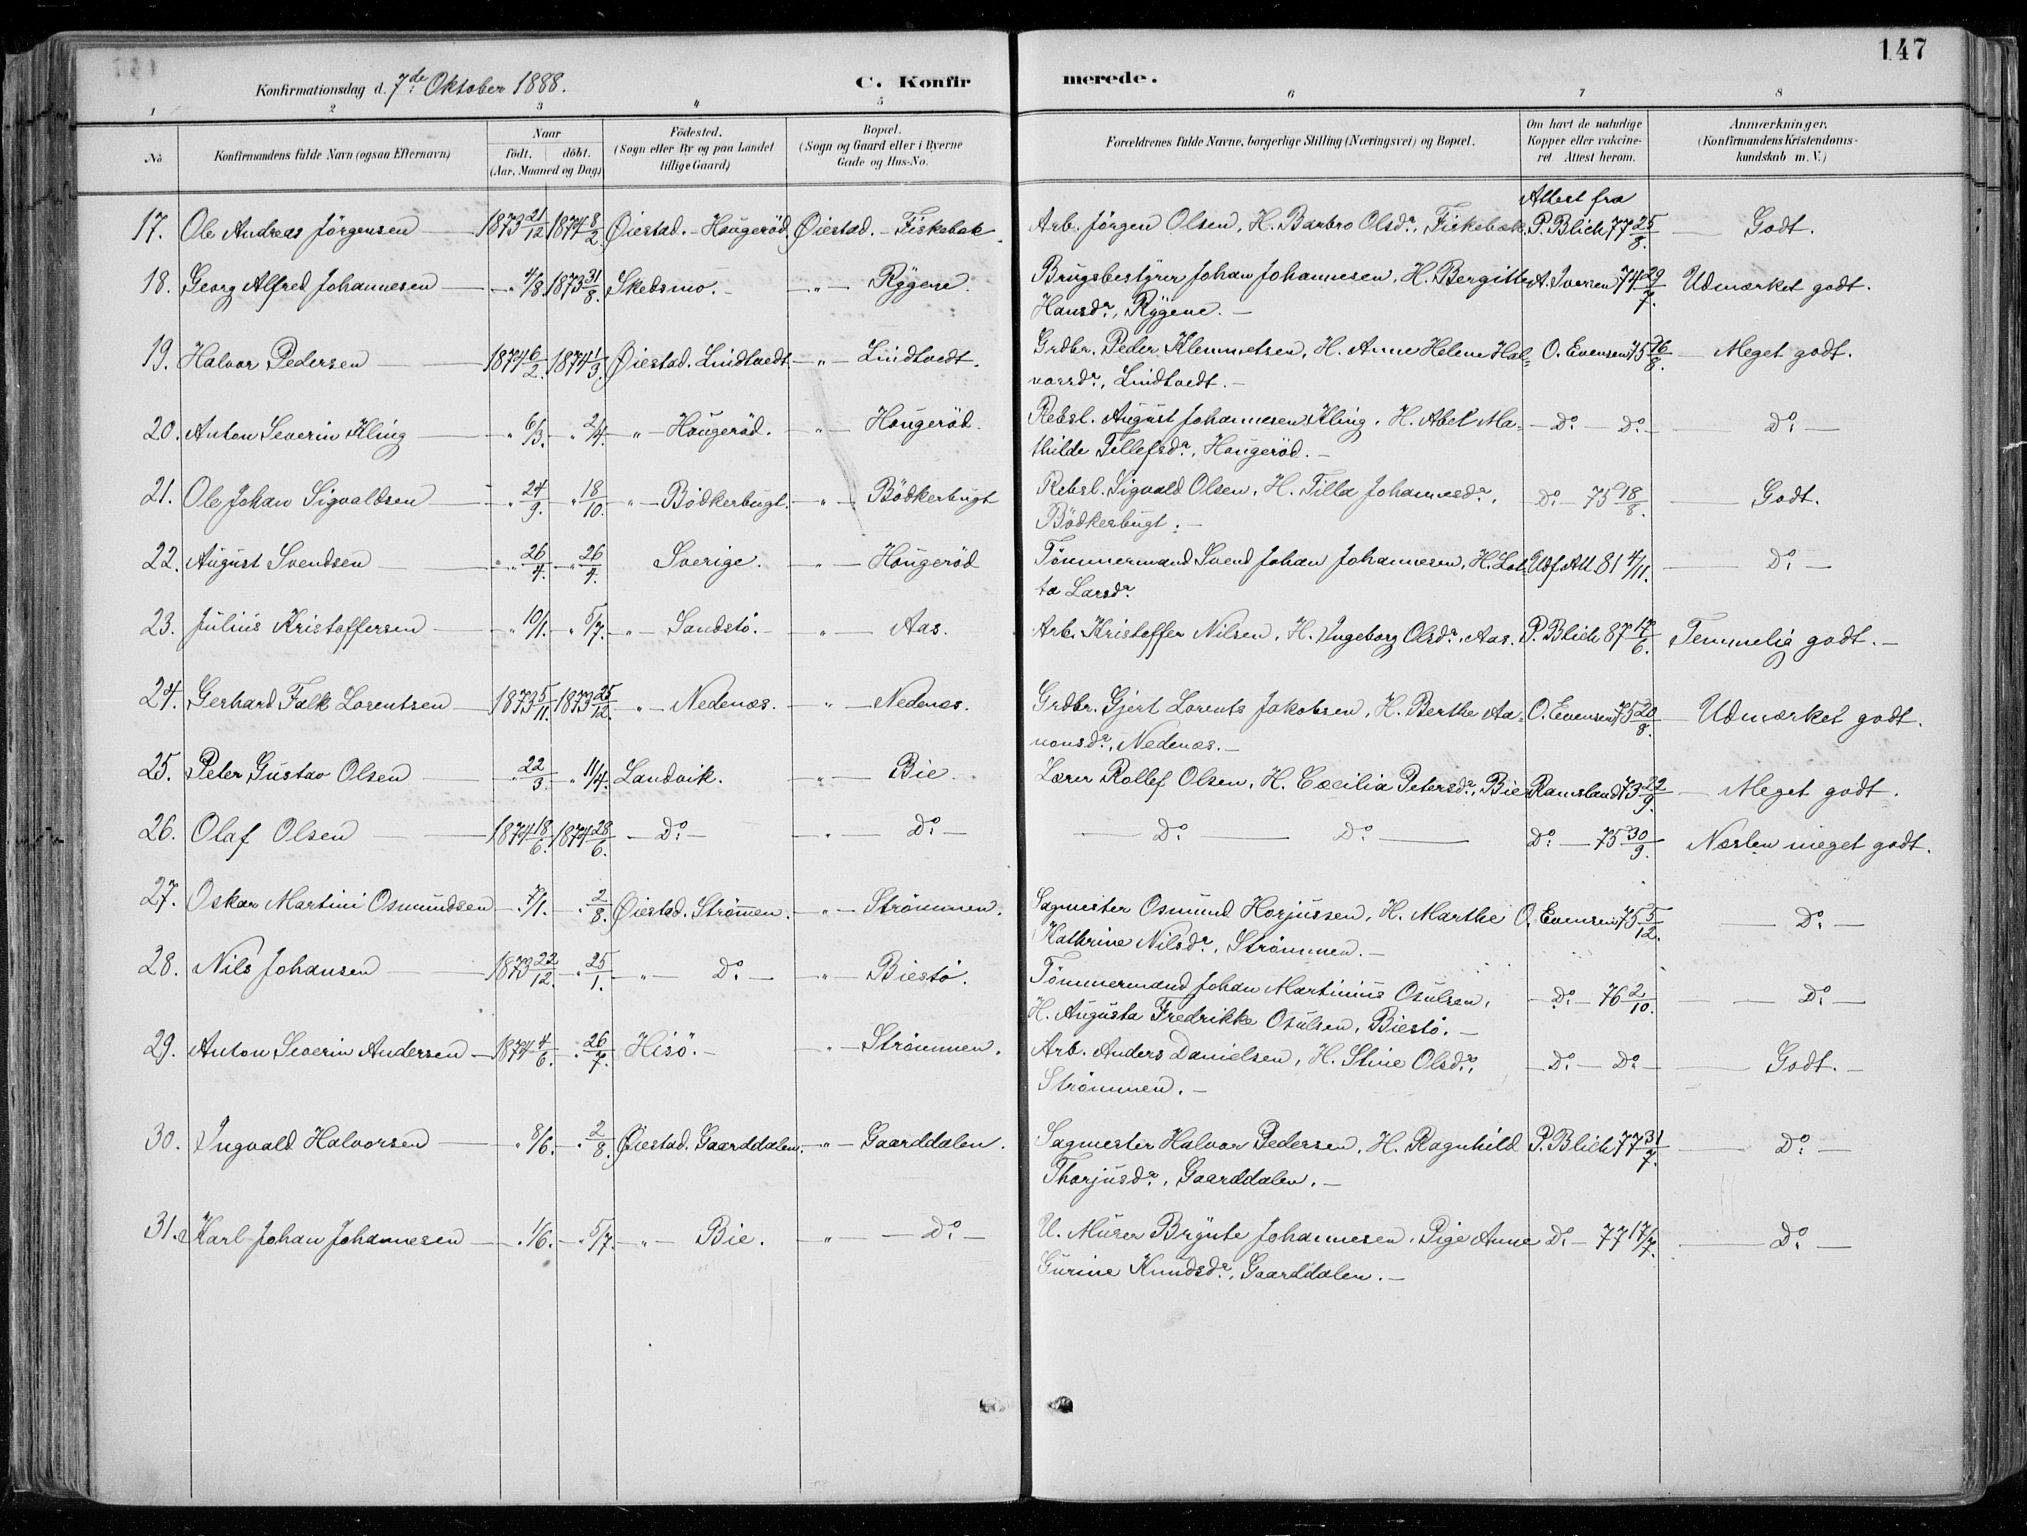 147
Konfirmationsdag d. 7de Oktober 1888.
C. Konfir merede.
1 2 3 " 5 6 7 8
No
Konfirmandens fulde Navn (ogsaa Efternavn)
Naar
födt. döbt.
(Aar, Maaned og Dag)
Födested.
(Sogn eller By og paa Landet
tillige Gaard)
Bopæl.
(Sogn og Gaard eller i Byerne
Gade og Hus-No.
Forældrenes fulde Navne, borgerlige Stilling (Næringsvei) og Bopæl.
Om havt de naturlige
Kopper eller vakcine-
ret. Attest herom.
Anmærkninger,
(Konfirmandens Kristendoms-
kundskab m. V.)
Attest fra
17. Ole Andreas Jörgensen — 1873 21/12 1874 8/2 Øiestad. - Haugeröd Øiestad. - Fiskebæk. Arb. Jörgen Olsen, H. Barbro Olsdr, Fiskebæk. P. Blich 77 25/8. — Godt.
18. Georg Alfred Johannesen — " 4/8 1873 31/8. Skedsmo. — " — Rygene. Brugsbestyrer Johan Johannesen, H. Bergitte A. Iversen 74 29/7. Udmærket godt.
Hansdr, Rygene. —
19. Halvor Pedersen — 1874 6/2. 1874 1/3. Øiestad. Lindtvedt. — " — Lindtvedt. Grdbr. Peder Klemmetsen, H. Anne Helene Hal= O. Evensen 75 26/8. — Meget godt.
vorsdr, Lindtvedt. —
20. Anton Severin Kling — " 6/3. " 2/4. " — Haugeröd. " — Haugeröd. Rebsl. August Johannesen Kling, H. Abel Ma= — Do — Do — — Do —
thilde Tellefsdr, Haugeröd. —
21. Ole Johan Sigvaldsen — " 24/9. " 18/10. " — Bödkerbugt. — " — Bödkerbugt Rebsl. Sigvald Olsen, H. Tilla Johannesdr, Do — 75 18/8. — Godt.
Bödkerbugt. —
22. August Svendsen — " 26/4. " 26/4. Sverige. — " — Haugeröd Tömmermand Svend Johan Johannesen, H. Lot= Udf. Att 81 4/11. — Do —
ta Larsdr
23. Julius Kristoffersen — " 10/1. " 5/7. " — Sandstö. — " — Aas. Arb. Kristoffer Nilsen, H. Ingeborg Olsdr, Aas. P. Blich 87 17/6. Temmelig godt. —
24. Gerhard Falk Lorentsen — 1873 5/11. 1873 25/12. " — Nedenæs. " — Nedenæs. Grdbr. Gjert Lorents Jakobsen, H. Berthe Aa= O. Evensen 75 20/8. — Udmærket godt.
nonsdr, Nedenæs. —
25. Peter Gustav Olsen — " 22/3. " 11/4. Landvik. " — Bie. Lærer Rollef Olsen, H. Cæcilia Petersdr, Bie Ramsland 73 22/9. — Meget godt.
26. Olaf Olsen — 1874 18/6. 1874 28/6. — Do — " — Do — — Do — Do — Do — 75 30/9. Næsten meget godt.
27. Oskar Martini Osmundsen — " 7/1. — " 2/8. Øiestad. Strömmen. — " — Strömmen. Sagmester Osmund Horjussen, H. Marthe O. Evensen 75 5/12. — Do —
Kathrine Nilsdr, Strömmen. —
28. Nils Johansen — 1873 22/12. " 25/1. — " — Do — " — Biestö. Tömmermand Johan Martinius Osulsen, — Do — 76 2/10. — Do —
H. Augusta Fredrikke Osulsen, Biestö. —
29. Anton Severin Andersen — 1874 4/6. " 26/7. Hisö. — " — Strömmen. Arb. Anders Danielsen, H. Stine Olsdr, — Do — Do — — Godt. —
Strömmen. —
30. Ingvald Halvorsen — " 8/6. — " 2/8. Øiestad. Gaarddalen. " — Gaarddalen. Sagmester Halvor Pedersen, H. Ragnhild P. Blich 77 31/7. — Do —
Thorjusdr, Gaarddalen. —
31. Karl Johan Johannesen — " 1/6. — " 5/7. — " — Bie. — " — Do — U. Murer Brynte Johannesen, Pige Anne Do — 77 17/7. — Do —
Gurine Knudsdr, Gaarddalen. —